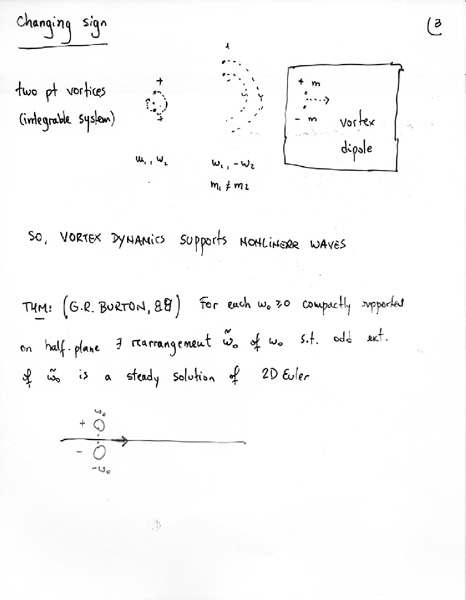 Changing sign
(3
two pt vortices
(integrable system)
+
+
ω₁, ω₂
ω₁, -ω₂
m₁ ≠ m₂
+ m
- m
vortex
dipole
SO, VORTEX DYNAMICS SUPPORTS NONLINEAR WAVES
THM: (G.R. BURTON, 88) For each ω₀ ≥ 0 compactly supported
on half-plane ∃ rearrangement ω̃₀ of ω₀ s.t. odd ext.
of ω̃₀ is a steady solution of 2D Euler
ω₀
+
-
-ω₀